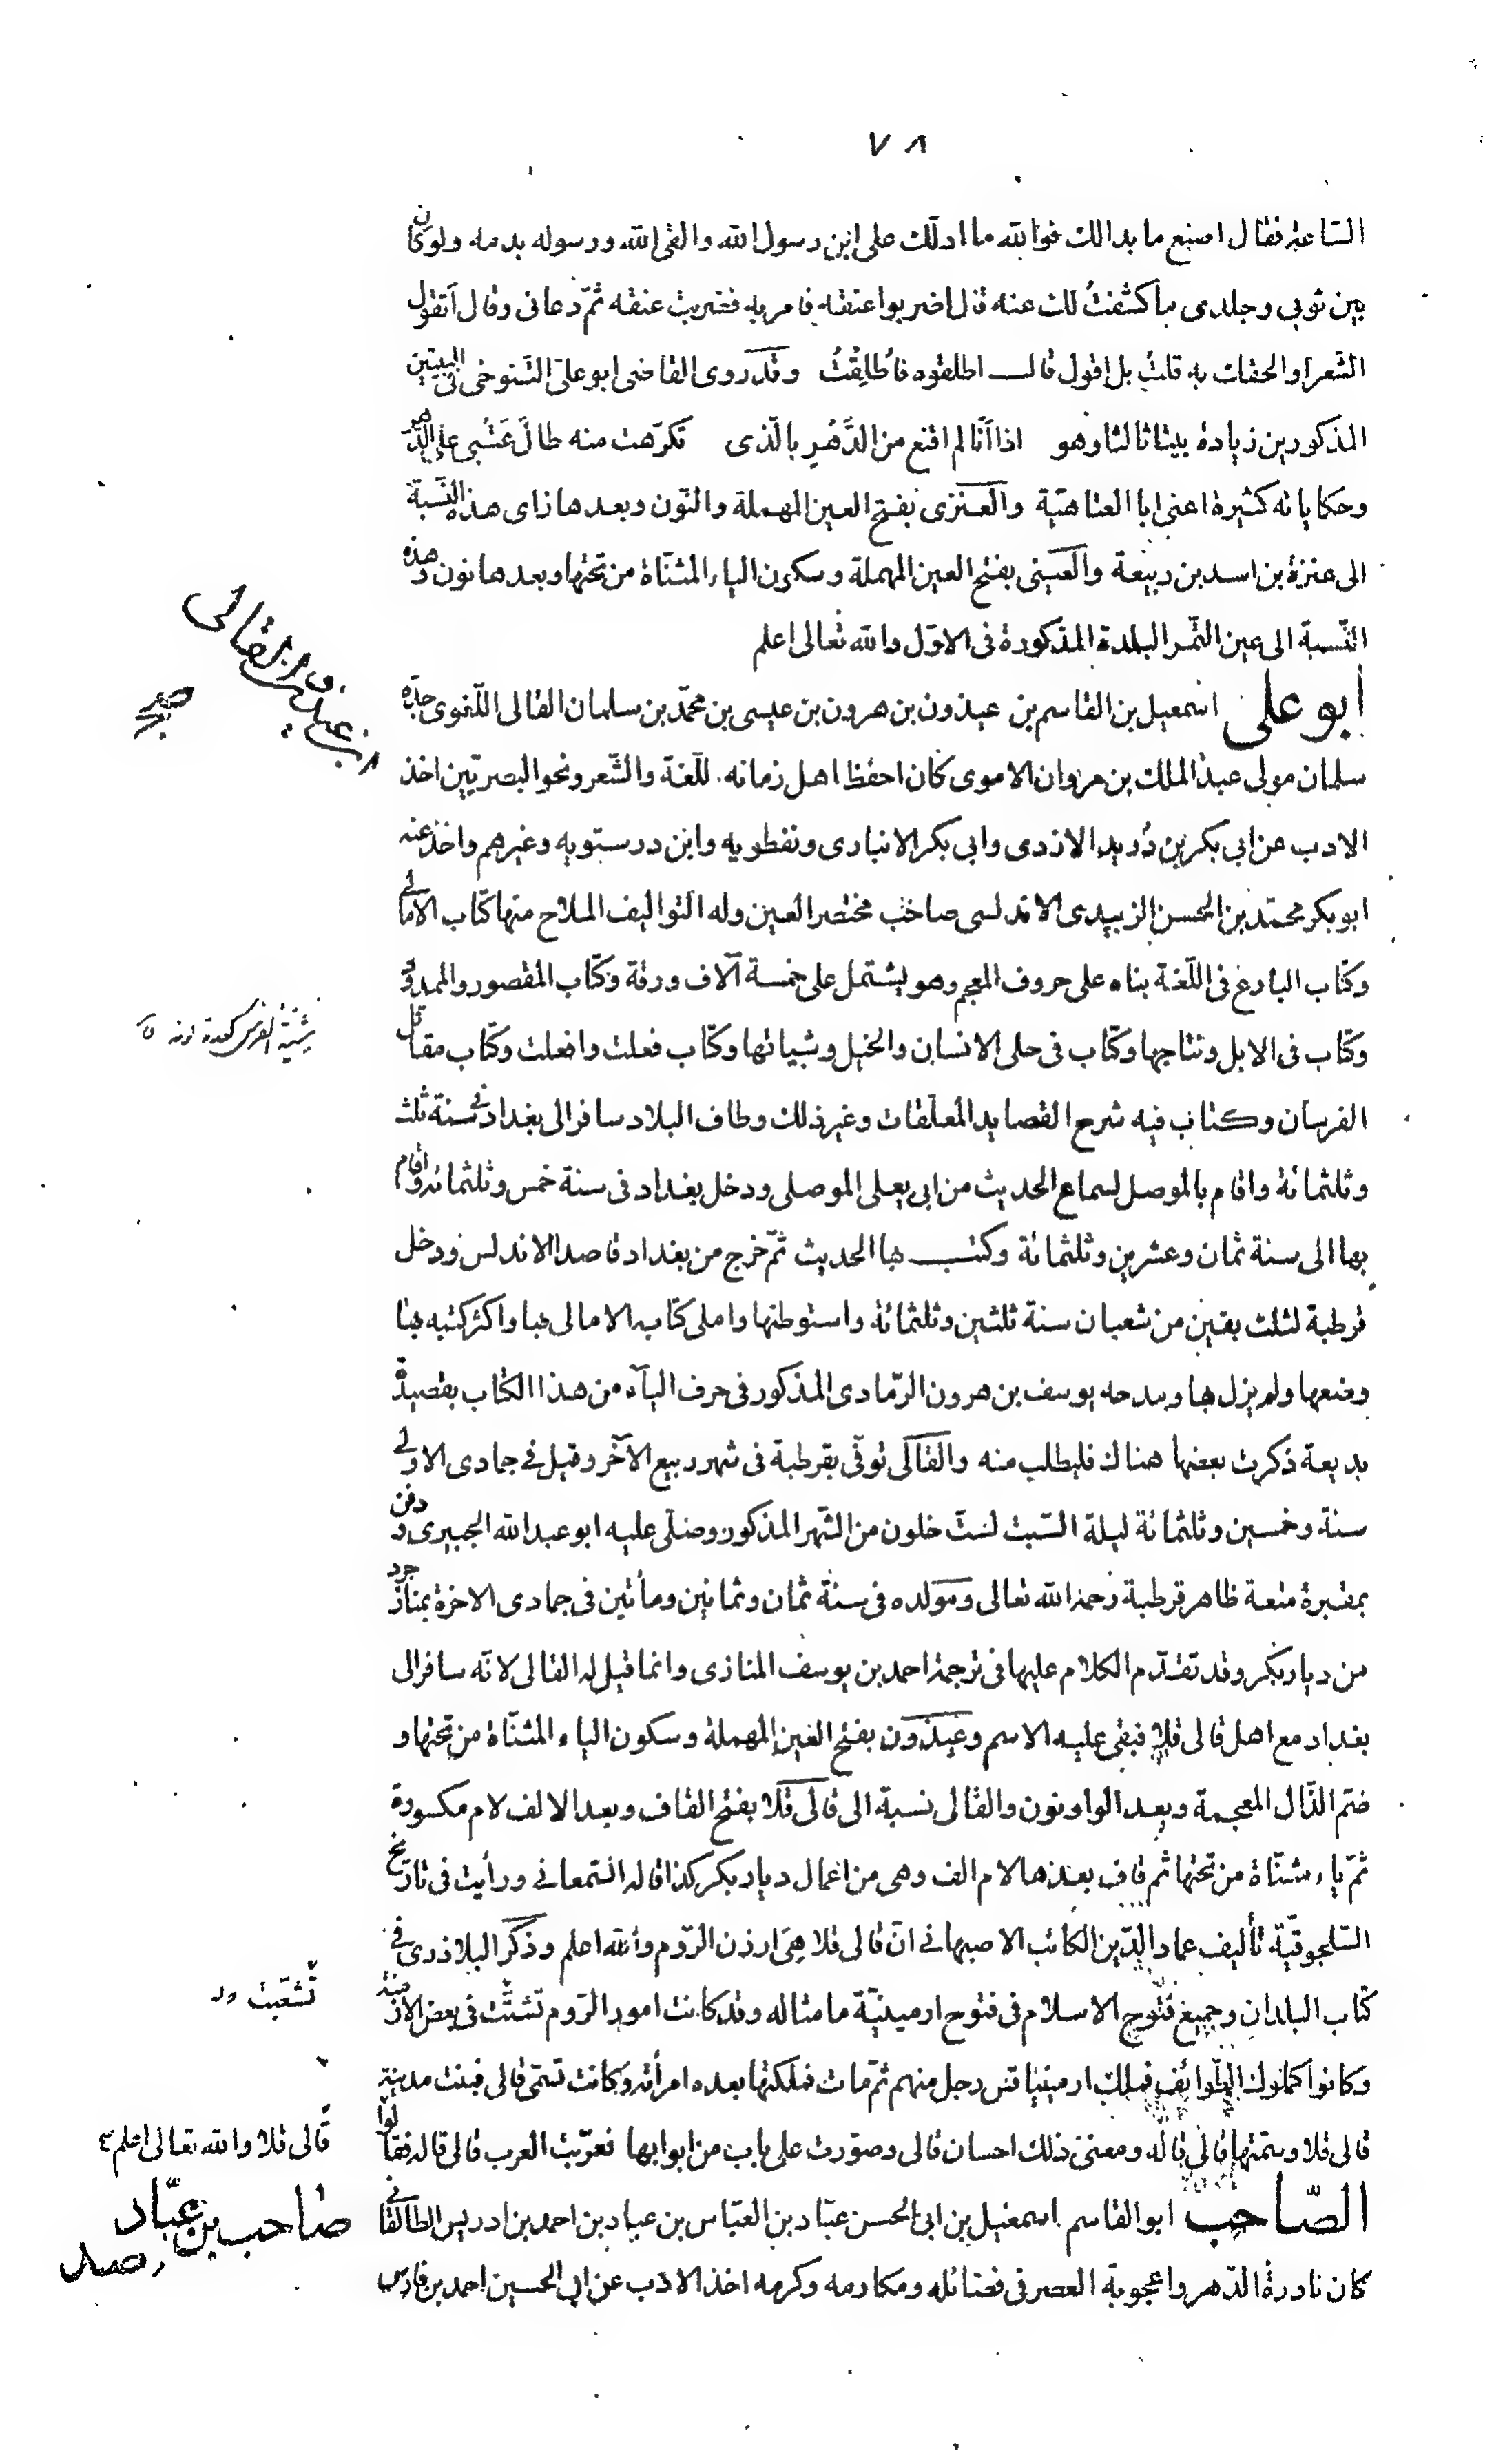 ٧٨
الساعة فقال اصنع ما بدا لك فوالله ما ادلّك على ابن رسول الله والقى الله ورسوله بدمه ولو كان
بين ثوبي وجلدى ما كشفتُ لك عنه قال اضربوا عنقه فامر به فضربت عنقه ثمّ دعانى وقال أتقول
الشعر او الحقك به قلت بل اقول قال اطلقوه فأُطلِقتُ وقد روى القاضى ابو علىّ التنوخى فى البيتين
المذكورين زيادة بيتا ثالثا وهو اذا أنا لم اقنع من الدَّهْرِ بالّذى تكرّهت منه طالَ عَتْبى على الدّهر
وحكاياته كثيرة اعنى ابا العتاهيّة والعنزى بفتح العين المهملة والنّون وبعدها زاى هذه النّسبة
الى عنزة بن اسد بن ربيعة والعينى بفتح العين المهملة وسكون الياء المثنّاة من تحتها وبعدها نون وهذه
النّسبة الى عين التّمر البلدة المذكورة فى الاوّل والله تعالى اعلم
أبو على اسمعيل بن القاسم بن عيذون بن هرون بن عيسى بن محمّد بن سلمان القالى اللّغوى جدّه
سلمان مولى عبد الملك بن مروان الاموى كان احفظ اهل زمانه للّغة والشّعر ونحو البصريّين اخذ
الادب عن ابى بكر بن دُريد الازدى وابى بكر الانبارى ونفطويه وابن درستويه وغيرهم واخذ عنه
ابو بكر محمّد بن الحسن الزبيدى الاندلسى صاحب مختصر العين وله التواليف الملاح منها كتاب الامالى
وكتاب البارع فى اللّغة بناه على حروف المعجم وهو يشتمل على خمسة آلاف ورقة وكتاب المقصور والممدود
وكتاب فى الابل ونتاجها وكتاب فى حلى الانسان والخيل وشياتها وكتاب فعلت وافعلت وكتاب مقاتل
الفرسان وكتاب فيه شرح القصايد المعلّقات وغير ذلك وطاف البلاد سافر الى بغداد فى سنة ثلث
وثلثمائة واقام بالموصل لسماع الحديث من ابى يعلى الموصلى ودخل بغداد فى سنة خمس وثلثمائة واقام
بها الى سنة ثمان وعشرين وثلثمائة وكتب بها الحديث ثمّ خرج من بغداد قاصدا الاندلس ودخل
قرطبة لثلث بقين من شعبان سنة ثلثين وثلثمائة واستوطنها واملى كتابه الامالى بها واكثر كتبه بها
وضعها ولم يزل بها ومدحه يوسف بن هرون الرّمادى المذكور فى حرف اليآء من هذا الكتاب بقصيدة
بديعة ذكرت بعضها هناك فليطلب منه والقالى توفّى بقرطبة فى شهر ربيع الآخر وقيل فى جمادى الاولى
سنة وخمسين وثلثمائة ليلة السّبت لستّ خلون من الشّهر المذكور وصلّى عليه ابو عبد الله الجبيرى ودفن
بمقبرة متعة ظاهر قرطبة رحمه الله تعالى ومولده فى سنة ثمان وثمانين ومأتين فى جمادى الاخرة بمنازجرد
من ديار بكر وقد تقدّم الكلام عليها فى ترجمة احمد بن يوسف المنازى وانما قيل له القالى لانّه سافر الى
بغداد مع اهل قالى قلا فبقى عليه الاسم وعيذون بفتح العين المهملة وسكون الياء المثنّاة من تحتها و
ضمّ الذّال المعجمة وبعد الواو نون والقالى نسبة الى قالى قلا بفتح القاف وبعد الالف لام مكسورة
ثمّ ياء مثنّاة من تحتها ثم قاف بعدها لام الف وهى من اعمال ديار بكر كذا قاله السّمعانى ورأيت فى تاريخ
السّلجوقيّة تأليف عماد الدّين الكاتب الاصبهانى انّ قالى قلا هِىَ ارزن الرّوم والله اعلم وذكر البلاذرى فى
كتاب البلدان وجميع فتوح الاسلام فى فتوح ارمينيّة ما مثاله وقد كانت امور الرّوم تشتّت فى بعض الازمنة
وكانوا كملوك الطّوائف فملك ارمينياقس رجل منهم ثمّ مات فملكتها بعده امرأته وكانت تسمّى قالى فبنت مدينة
قالى قلا وسمّتها قالى قاله ومعنى ذلك احسان قالى وصوّرت على باب من ابوابها فعرّبت العرب قالى قاله فقالوا
الصّاحب ابو القاسم اسمعيل بن ابى الحسن عبّاد بن العبّاس بن عباد بن احمد بن ادريس الطالقانى
كان نادرة الدّهر واعجوبة العصر فى فضائله ومكارمه وكرمه اخذ الادب عن ابى الحسين احمد بن فارس
ابن عيذون القالى
تشعّبت
قالى قلا والله تعالى اعلم
صاحب بن عبّاد